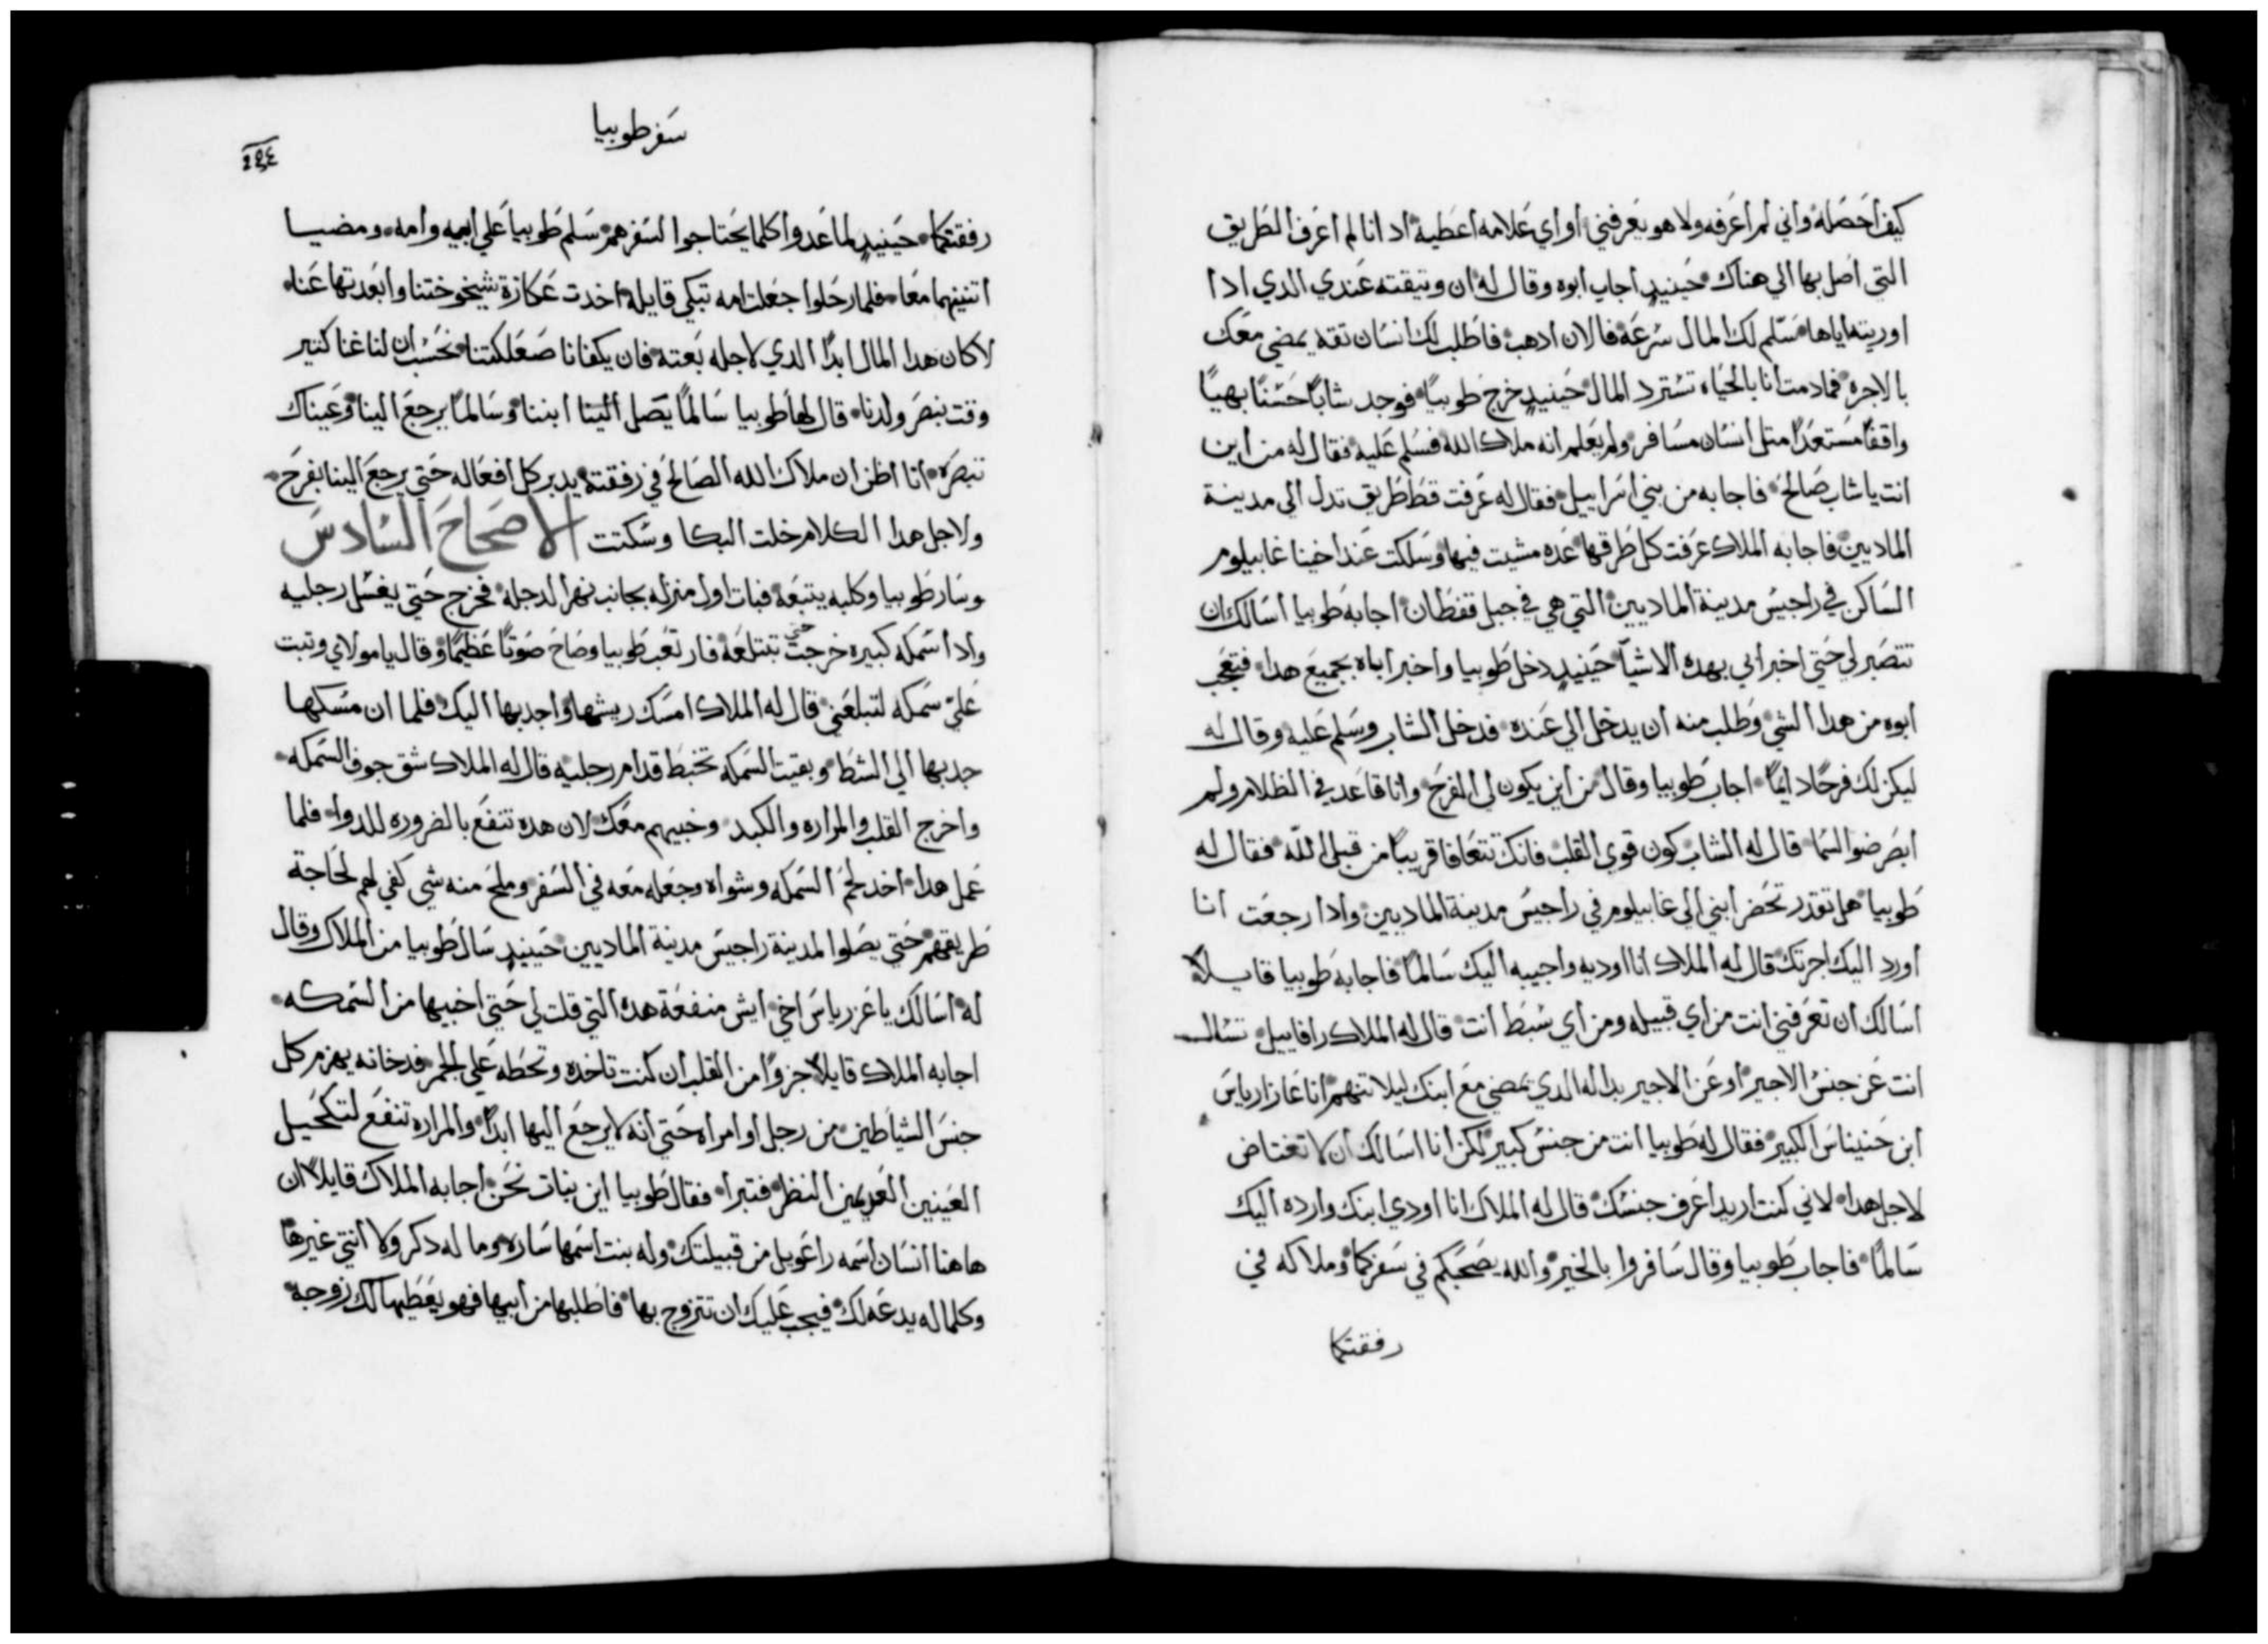 كيف احصله واني لم اعرفه ولا هو يعرفني او اي علامه اعطيه اد انا لم اعرف الطريق
التي اصل بها الي هناك حينيدٍ اجاب ابوه وقال له ان وتيقته عندي الدي ادا
اوريته اياها سَلم لك المال سرعة فالان ادهب فاطلب لك انسان تقه يمضي معك
بالاجره فمادمت انا بالحياه تسترد المال حينيدٍ خرج طوبيا فوجد شاباً حسناً بهياً
واقفاً مستعداً متل انسان مسافر ولم يعلم انه ملاك الله فسلم عليه فقال له من اين
انت يا شاب صالح فاجابه من بني اسراييل فقال له عرفت قط طريق تدل الي مدينة
الماديين فاجابه الملاك عرفت كل طرقها عده مشيت فيها وسلكت عند اخينا غابيلوم
الساكن في راجيس مدينة الماديين التي هي في جبل قفطان اجابه طوبيا اسالك ان
تتصبر لي حتي اخبر ابي بهده الاشيا حينيدٍ دخل طوبيا واخبر اباه بجميع هدا فتعجب
ابوه من هدا الشي وطلب منه ان يدخل الي عنده فدخل الشاب وسلم عليه وقال له
ليكن لك فرحاً دايماً اجاب طوبيا وقال من اين يكون لي الفرح وانا قاعد في الظلام ولم
ابصر ضوا السما قال له الشاب كون قوي القلب فانك تتعافا قريباً من قبل الله فقال له
طوبيا هل تقدر تحضر ابني الي غابيلوم في راجيس مدينة الماديين وادا رجعت انا
اورد اليك اجرتك قال له الملاك انا اوديه واجيبه اليك سالماً فاجابه طوبيا قايلاً
اسالك ان تعرفني انت من اي قبيله ومن اي سبط انت قال له الملاك رافاييل تسال
انت عن جنس الاجير او عن الاجير بداله الدي يمضي مع ابنك ليلا تتهم انا عازارياس
ابن حنيناس الكبير فقال له طوبيا انت من جنس كبير لكن انا اسالك ان لا تغتاض
لاجل هدا لاني كنت اريد اعرف جنسك قال له الملاك انا اودي ابنك وارده اليك
سالماً فاجاب طوبيا وقال سافروا بالخير والله يصحبكم في سفركما وملاكه في
رفقتكما
سفر طوبيا
رفقتكما حينيدٍ لما عدوا كلما يحتاجوا لسفرهم سلم طوبيا علي ابيه وامه ومضيا
اتنينهما معا فلما رحلوا جعلت امه تبكي قايله اخدت عكازة شيخوختنا وابعدتها عنا
لا كان هدا المال ابداً الدي لاجله بعته فان يكفانا صعلكتنا نحسب ان لنا غنا كتير
وقت بنصر ولدنا قال لها طوبيا سالماً يصل الينا ابننا وسالماً يرجع الينا وعيناك
تبصره انا اظن ان ملاك الله الصالح في رفقته يدبر كل افعاله حتي يرجع الينا بفرح
ولاجل هدا الكلام خلت البكا وسكتت الاصحاح السادس
وسار طوبيا وكلبه يتبعه فبات اول منزله بجانب نهر الدجله فخرج حتي يغسل رجليه
وادا سمكه كبيره خرجت حتي تبتلعه فارتعب طوبيا وصاح صوتاً عظيماً وقال يا مولاي وتبت
عليّ سمكه لتبلعني قال له الملاك امسك ريشها واجدبها اليك فلما ان مسكها
جدبها الي الشط وبقيت السمكه تخبط قدام رجليه قال له الملاك شق جوف السمكه
واخرج القلب والمراره والكبد وخبيهم معك لان هده تنفع بالضروره للدوا فلما
عمل هدا اخد لحم السمكه وشواه وجعله معه في السفر وملح منه شي كفي لهم لحاجة
طريقهم حتي يصلوا لمدينة راجيس مدينة الماديين حينيدٍ سال طوبيا من الملاك وقال
له اسالك يا عزرياس اخي ايش منفعة هده التي قلت لي حتي اخبيها من السمكه
اجابه الملاك قايلاً جزواً من القلب ان كنت تاخده وتحطه علي الجمر فدخانه يهزم كل
جنس الشياطين من رجل او امراه حتي انه لا يرجع اليها ابداً والمراره تنفع لتكحيل
العينين العديمين النظر فتبرا فقال طوبيا اين بنات نحن اجابه الملاك قايلاً ان
هاهنا انسان اسمه راغويل من قبيلتك وله بنت اسمها ساره وما له دكر ولا انتي غيرها
وكلما له يدعه لك فيجب عليك ان تتزوج بها فاطلبها من ابيها فهو يعطيها لك زوجه